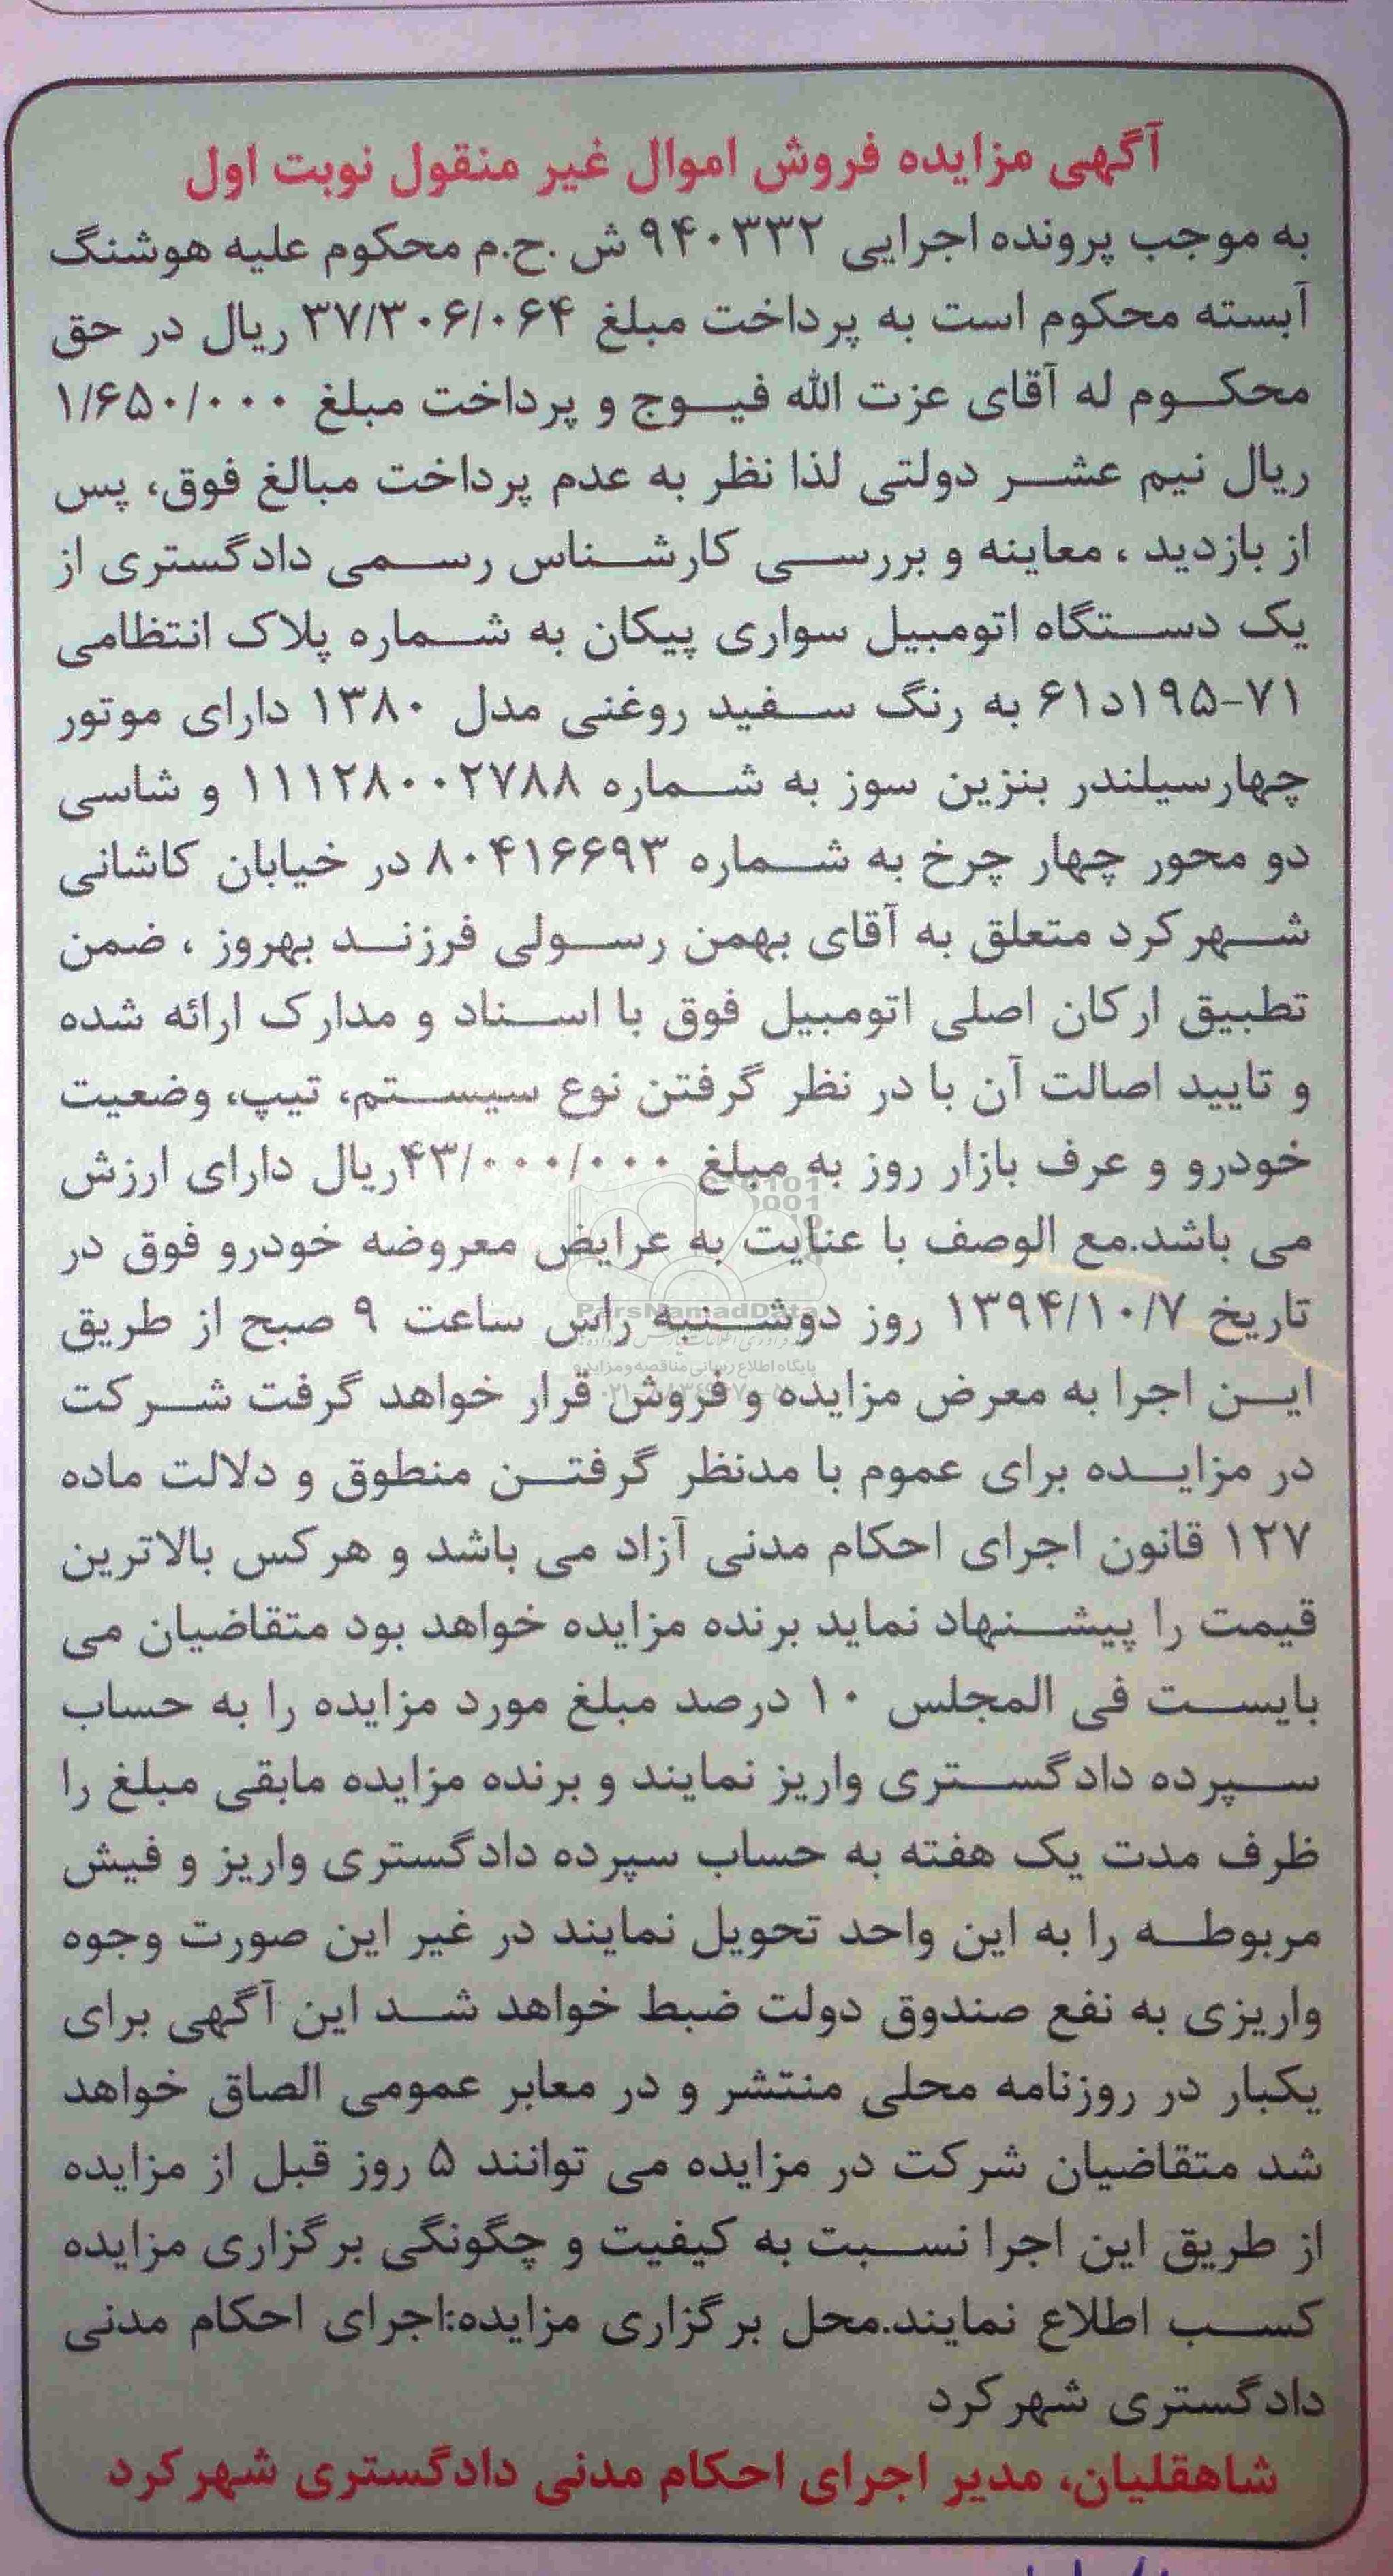 آگهی مزایده فروش اموال غیر منقول نوبت اول
به موجب پرونده اجرایی ۹۴۰۳۳۲ ش .ح.م محکوم علیه هوشنگ
آبسته محکوم است به پرداخت مبلغ ۳۷/۳۰۶/۰۶۴ ریال در حق
محکوم له آقای عزت الله فیوج و پرداخت مبلغ ۱/۶۵۰/۰۰۰
ریال نیم عشر دولتی لذا نظر به عدم پرداخت مبالغ فوق، پس
از بازدید ، معاینه و بررسی کارشناس رسمی دادگستری از
یک دستگاه اتومبیل سواری پیکان به شماره پلاک انتظامی
۷۱-۱۹۵د۶۱ به رنگ سفید روغنی مدل ۱۳۸۰ دارای موتور
چهارسیلندر بنزین سوز به شماره ۱۱۱۲۸۰۰۲۷۸۸ و شاسی
دو محور چهار چرخ به شماره ۸۰۴۱۶۶۹۳ در خیابان کاشانی
شهرکرد متعلق به آقای بهمن رسولی فرزند بهروز ، ضمن
تطبیق ارکان اصلی اتومبیل فوق با اسناد و مدارک ارائه شده
و تایید اصالت آن با در نظر گرفتن نوع سیستم، تیپ، وضعیت
خودرو و عرف بازار روز به مبلغ ۴۳/۰۰۰/۰۰۰ریال دارای ارزش
می باشد.مع الوصف با عنایت به عرایض معروضه خودرو فوق در
تاریخ ۱۳۹۴/۱۰/۷ روز دوشنبه راس ساعت ۹ صبح از طریق
این اجرا به معرض مزایده و فروش قرار خواهد گرفت شرکت
در مزایده برای عموم با مدنظر گرفتن منطوق و دلالت ماده
۱۲۷ قانون اجرای احکام مدنی آزاد می باشد و هرکس بالاترین
قیمت را پیشنهاد نماید برنده مزایده خواهد بود متقاضیان می
بایست فی المجلس ۱۰ درصد مبلغ مورد مزایده را به حساب
سپرده دادگستری واریز نمایند و برنده مزایده مابقی مبلغ را
ظرف مدت یک هفته به حساب سپرده دادگستری واریز و فیش
مربوطه را به این واحد تحویل نمایند در غیر این صورت وجوه
واریزی به نفع صندوق دولت ضبط خواهد شد این آگهی برای
یکبار در روزنامه محلی منتشر و در معابر عمومی الصاق خواهد
شد متقاضیان شرکت در مزایده می توانند ۵ روز قبل از مزایده
از طریق این اجرا نسبت به کیفیت و چگونگی برگزاری مزایده
کسب اطلاع نمایند.محل برگزاری مزایده:اجرای احکام مدنی
دادگستری شهرکرد
شاهقلیان، مدیر اجرای احکام مدنی دادگستری شهرکرد
ParsNamadData
پایگاه اطلاع رسانی مناقصه و مزایده